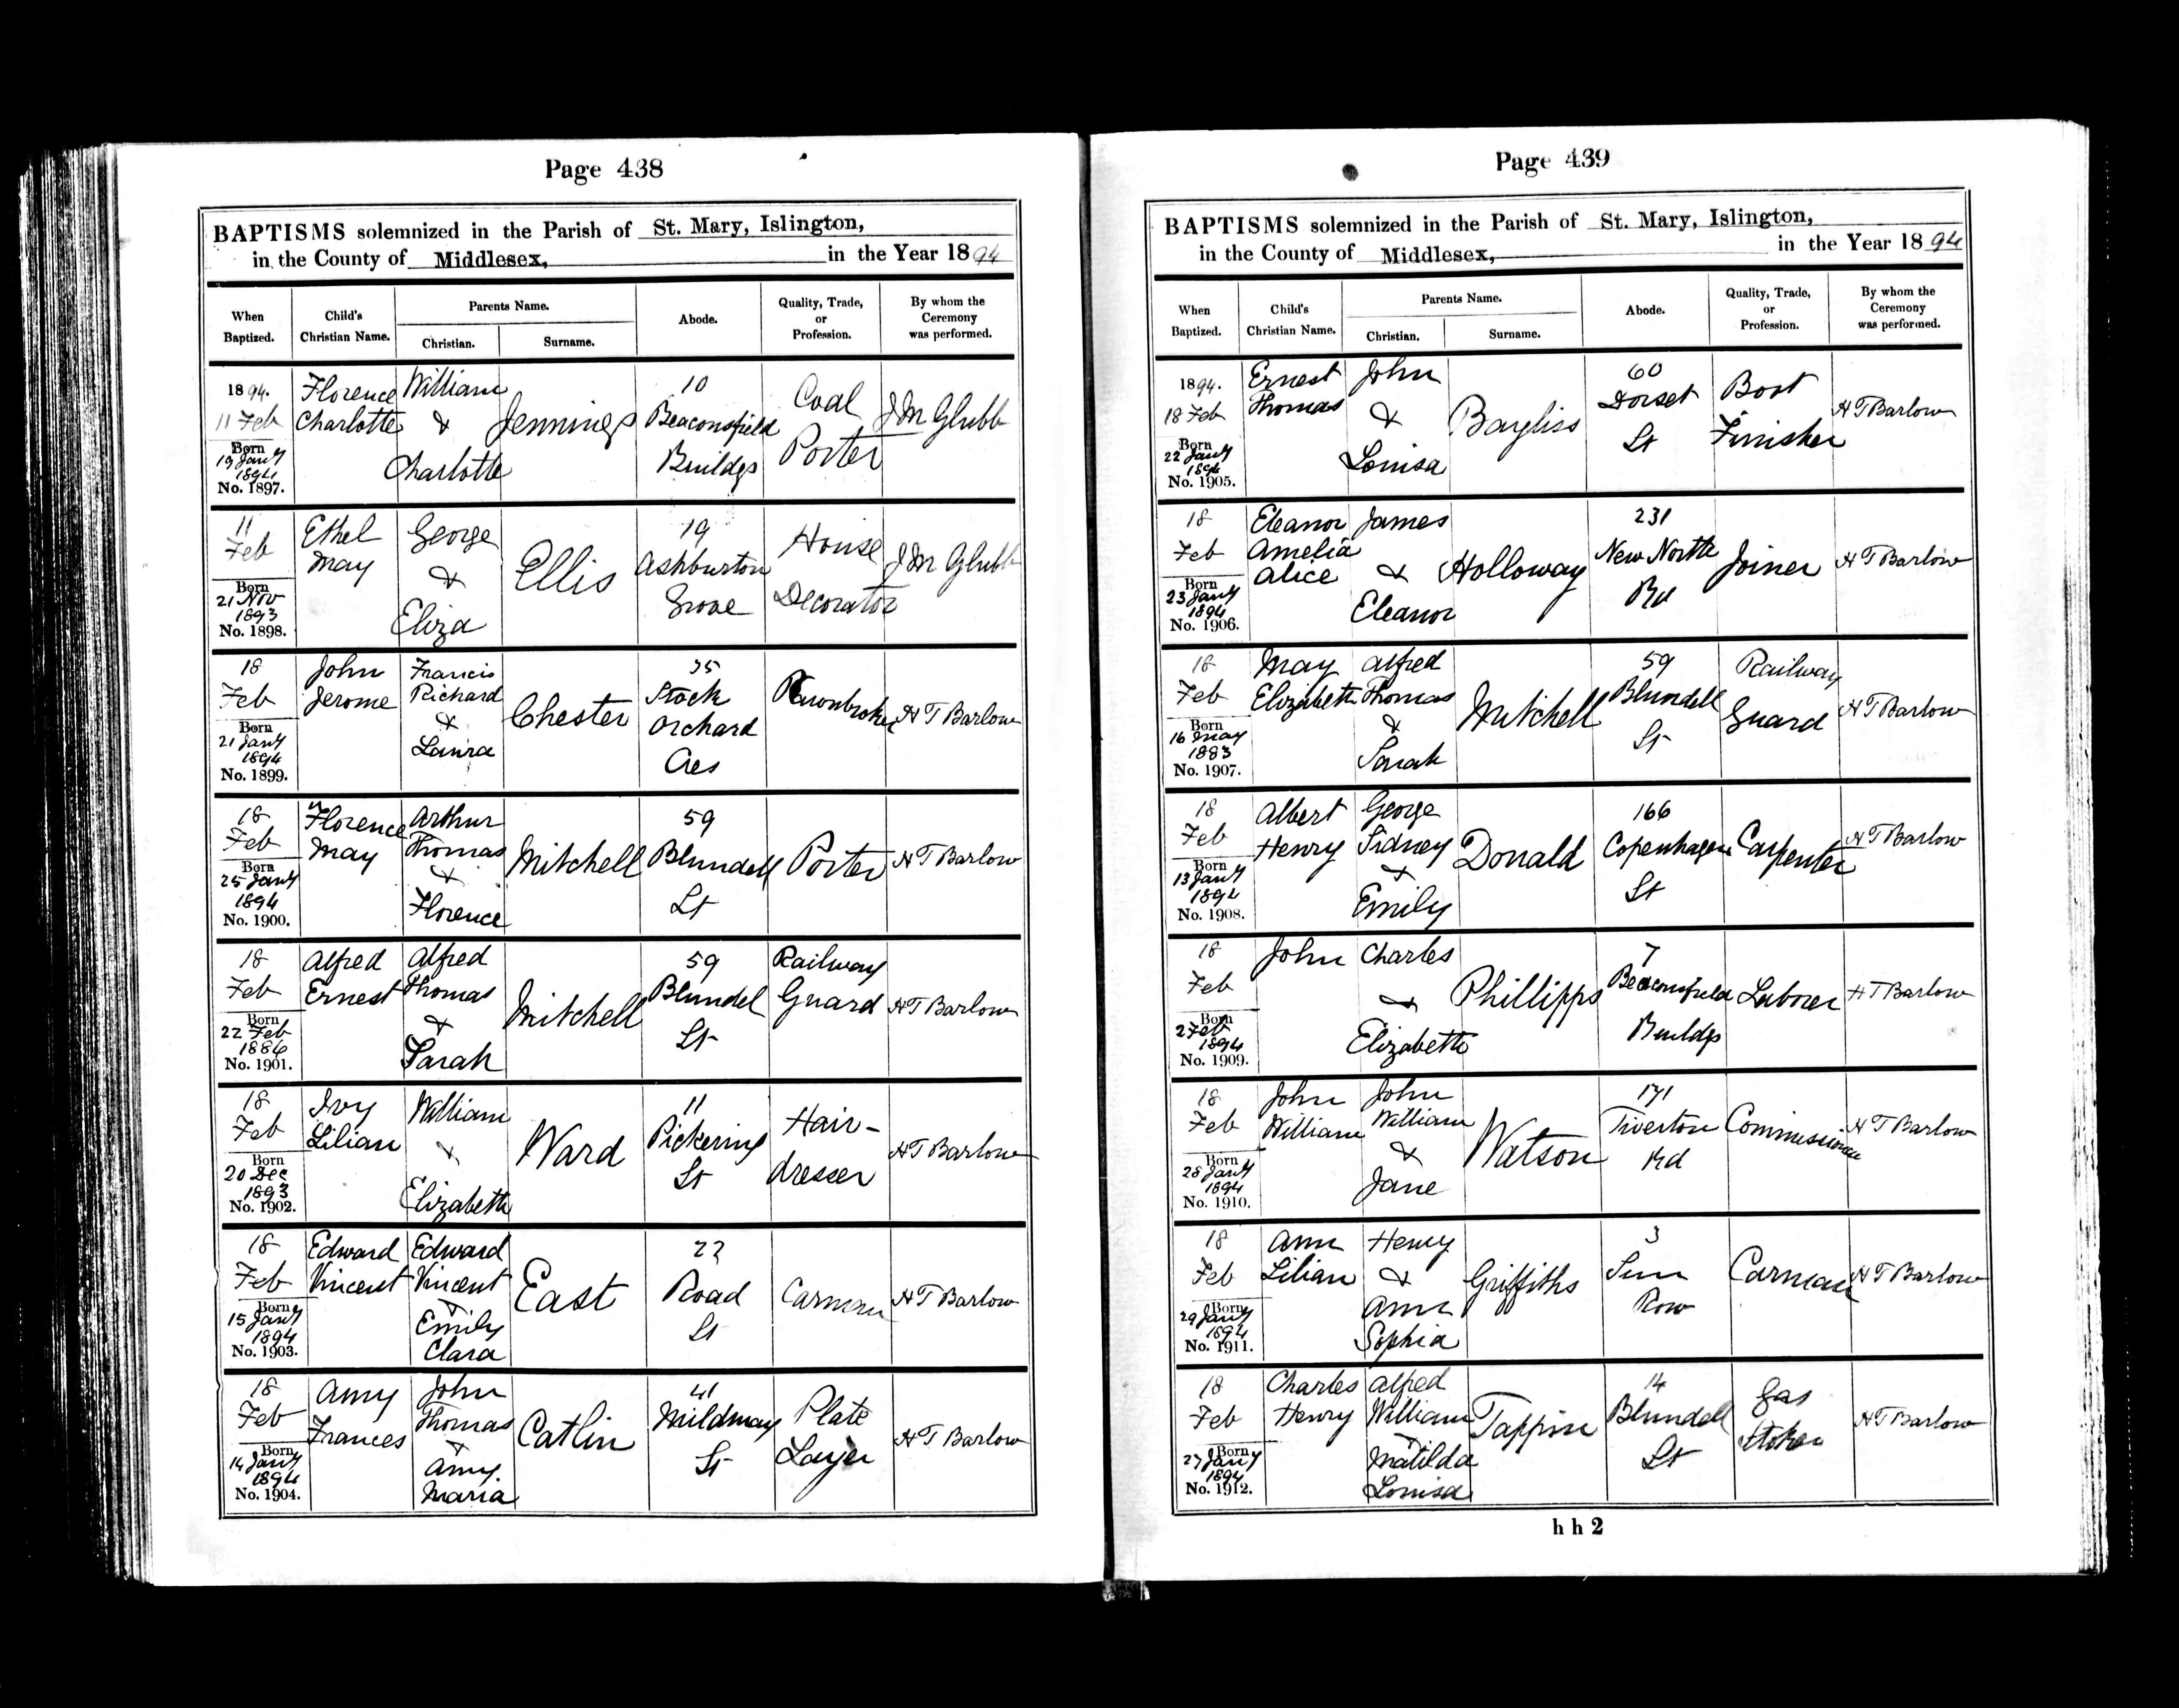 Page 438
BAPTISMS solemnized in the Parish of St. Mary, Islington,
in the County of Middlesex, in the Year 1894
When Baptized.
Child's Christian Name.
Parents Name.
Christian.
Surname.
Abode.
Quality, Trade, or Profession.
By whom the Ceremony was performed.
1894.
11 Feb
Born
19 Jany
1894
No. 1897.
Florence
Charlotte
William
&
Charlotte
Jennings
10
Beaconsfield
Buildgs
Coal
Porter
J M Glubb
11
Feb
Born
21 Nov
1893
No. 1898.
Ethel
May
George
&
Eliza
Ellis
19
Ashburton
Grove
House
Decorator
J M Glubb
18
Feb
Born
21 Jany
1894
No. 1899.
John
Jerome
Francis
Richard
&
Laura
Chester
35
Stock
Orchard
Cres
Pawnbroker
H T Barlow
18
Feb
Born
25 Jany
1894
No. 1900.
Florence
May
Arthur
Thomas
&
Florence
Mitchell
59
Blundell
St
Porter
H T Barlow
18
Feb
Born
22 Feb
1886
No. 1901.
Alfred
Ernest
Alfred
Thomas
&
Sarah
Mitchell
59
Blundel
St
Railway
Guard
H T Barlow
18
Feb
Born
20 Dec
1893
No. 1902.
Ivy
Lilian
William
&
Elizabeth
Ward
11
Pickering
St
Hair-
dresser
H T Barlow
18
Feb
Born
15 Jany
1894
No. 1903.
Edward
Vincent
Edward
Vincent
&
Emily
Clara
East
22
Road
St
Carman
H T Barlow
18
Feb
Born
14 Jany
1894
No. 1904.
Amy
Frances
John
Thomas
&
Amy.
Maria
Catlin
41
Mildmay
St
Plate
Layer
H T Barlow
Page 439
BAPTISMS solemnized in the Parish of St. Mary, Islington,
in the County of Middlesex, in the Year 1894
When Baptized.
Child's Christian Name.
Parents Name.
Christian.
Surname.
Abode.
Quality, Trade, or Profession.
By whom the Ceremony was performed.
1894.
18 Feb
Born
22 Jany
1894
No. 1905.
Ernest
Thomas
John
&
Louisa
Bayliss
60
Dorset
St
Boot
Finisher
H T Barlow
18
Feb
Born
23 Jany
1894
No. 1906.
Eleanor
Amelia
Alice
James
&
Eleanor
Holloway
231
New North
Rd
Joiner
H T Barlow
18
Feb
Born
16 May
1883
No. 1907.
May
Elizabeth
Alfred
Thomas
&
Sarah
Mitchell
59
Blundell
St
Railway
Guard
H T Barlow
18
Feb
Born
13 Jany
1894
No. 1908.
Albert
Henry
George
Sidney
&
Emily
Donald
166
Copenhagen
St
Carpenter
H T Barlow
18
Feb
Born
2 Feb
1894
No. 1909.
John
Charles
&
Elizabeth
Phillipps
7
Beaconsfield
Buildgs
Laborer
H T Barlow
18
Feb
Born
28 Jany
1894
No. 1910.
John
William
John
William
&
Jane
Watson
171
Tiverton
Rd
H T Barlow
18
Feb
Born
29 Jany
1894
No. 1911.
Ann
Lilian
Henry
&
Ann
Sophia
Griffiths
3
Sun
Row
Carman
H T Barlow
18
Feb
Born
27 Jany
1894
No. 1912.
Charles
Henry
Alfred
William
&
Matilda
Louisa
Tappin
14
Blundell
St
Gas
Stoker
H T Barlow
h h 2